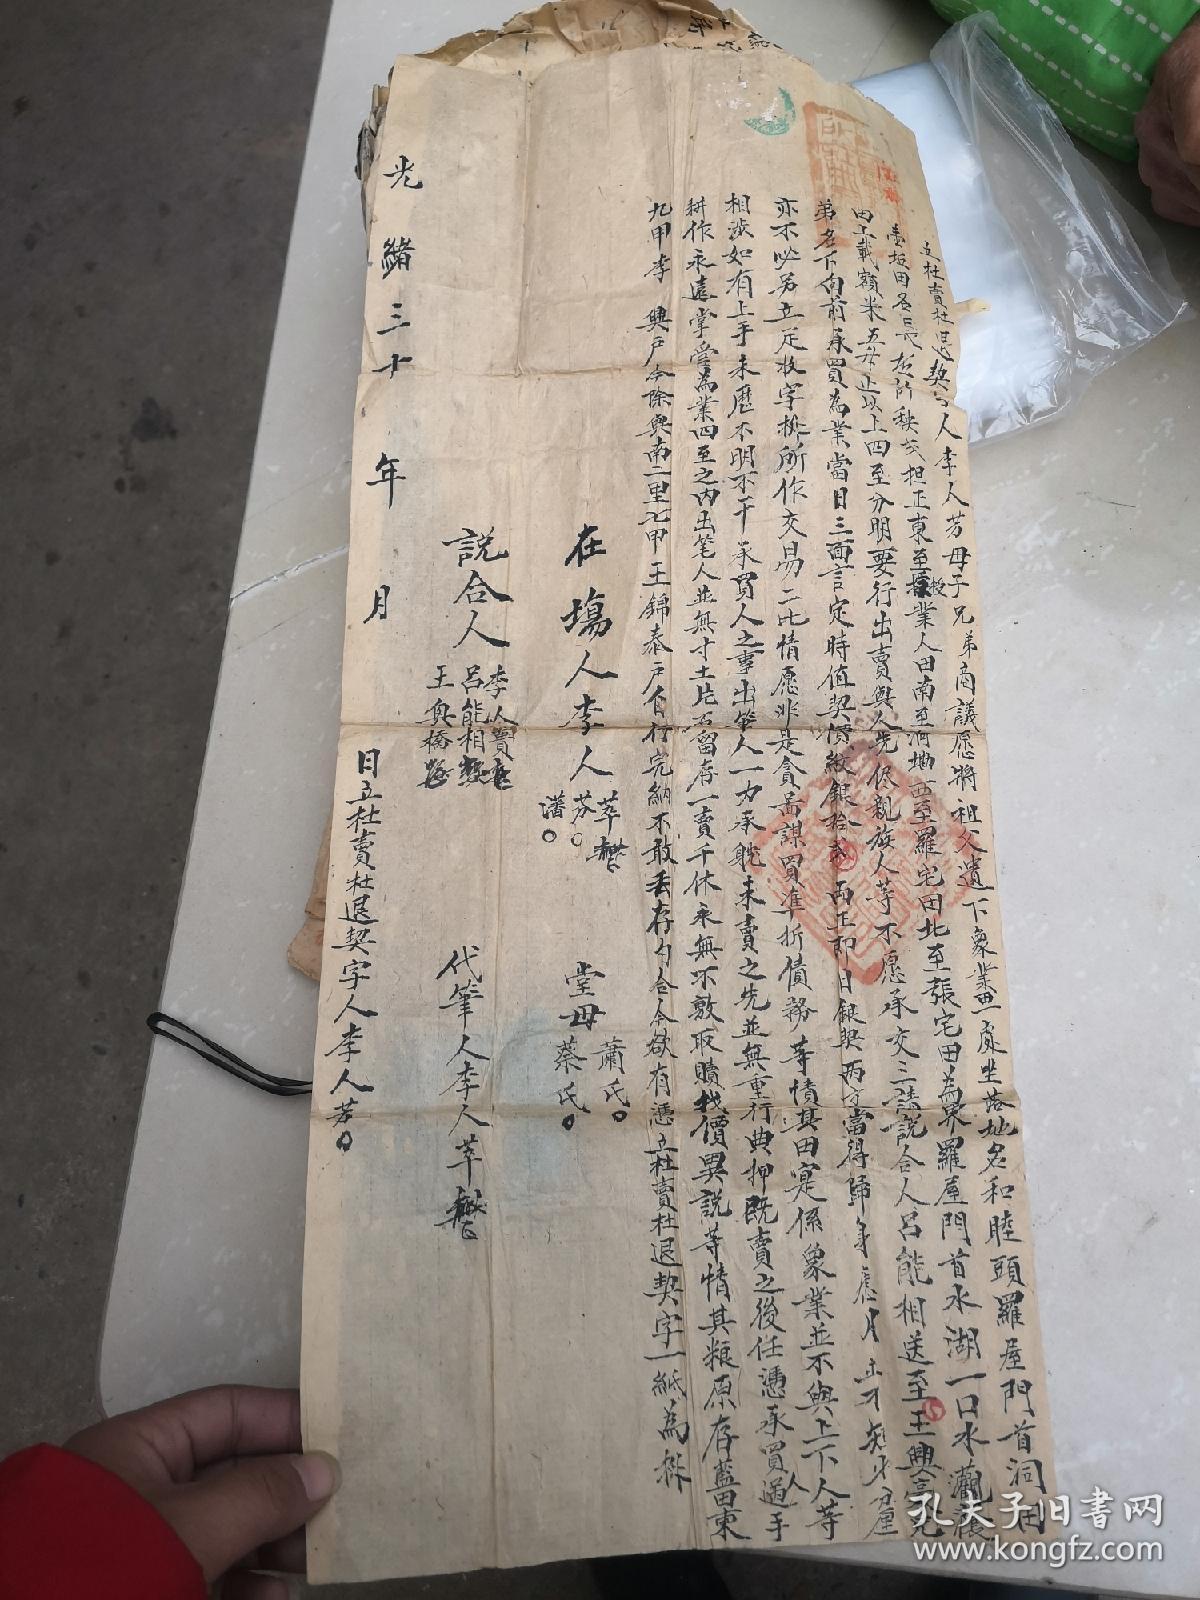 立杜賣杜退契字人李人芳母子兄弟商議愿將祖父遺下象業一處坐落地名和睦頭羅屋門首洞田
壹坵田名長在計秧弍担正東至授業人田南至河墈西至羅宅田北至張宅田為界羅屋門首水湖一口水灌蔭
田上載額米五升正以上四至分明要行出賣與人先侭親族人等不愿承交三請說合人呂能相送至王興亮兄
弟名下向前承買為業當日三面言定時值契價紋銀拾弍兩正即日銀契兩方當得歸身應用
亦不必另立足收字據所作交易二比情愿非是貪啚謀買準折債務等情其田寔係象業並不與上下人等
相涉如有上手未歷不明不干承買人之事出筆人一力承躭未賣之先並無重行典押既賣之後任憑承買人過手
耕作永遠掌管為業四至之內出筆人並無寸土片石留存一賣千休永無不敷取贖找價異說等情其粮原存藍田東
九甲李 興戶今除與南二里七甲王錦泰戶自行完納不敢丟存勺合今欲有憑立杜賣杜退契字一紙為據
在塲人李人
萃
芬
藩
堂母
蕭氏
蔡氏
說合人
李人賣
呂能相
王與橋
代筆人李人萃
光緒三十年 月 日立杜賣杜退契字人李人芳
孔夫子旧书网
www.kongfz.com